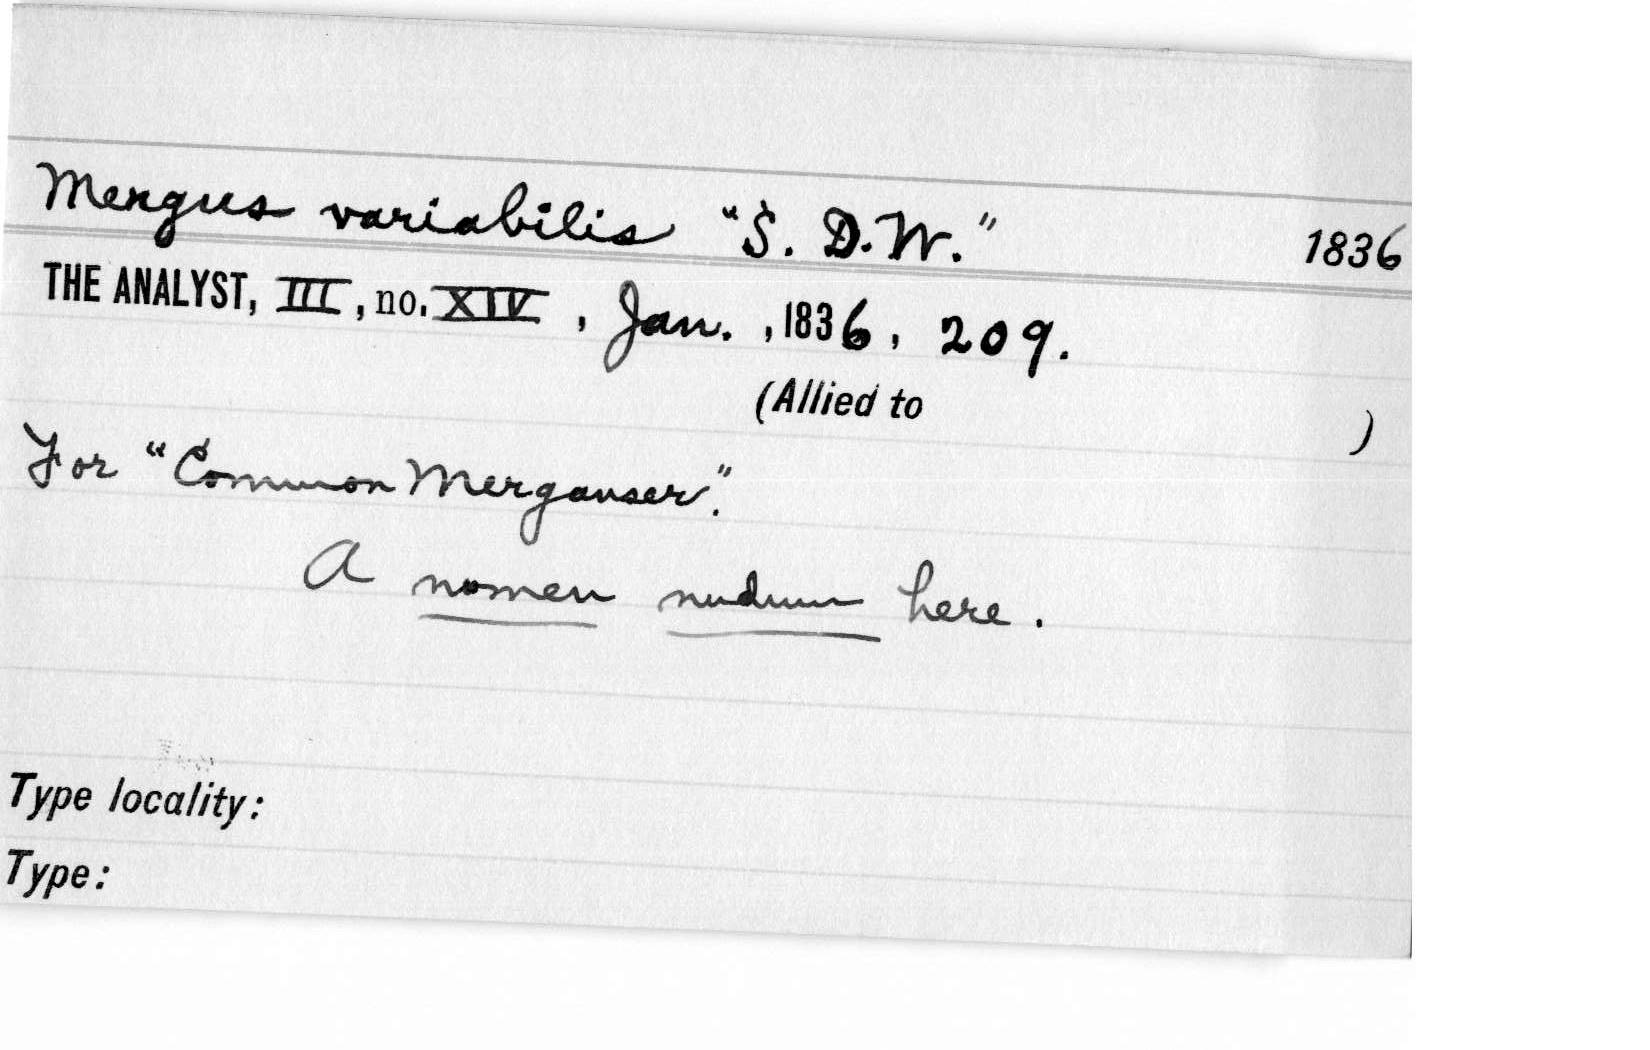 Mergus variabilis "S. D. W." 1836
THE ANALYST, III, no. XIV, Jan. , 1836, 209.
(Allied to )
For "Common Merganser".
A nomen nudum here.
Type locality:
Type: